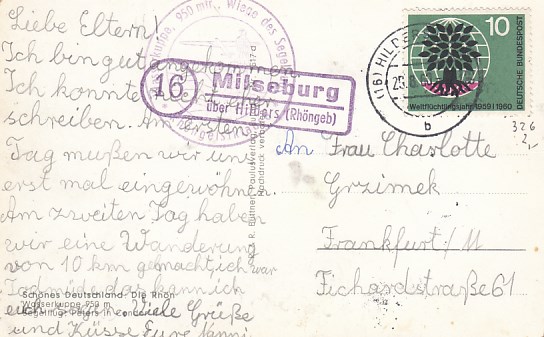 Liebe Eltern!
Ich bin gut angekommen
Ich konnte
schreiben. Am ersten
Tag mußen wir uns
erst mal eingewöhnen
Am zweiten Tag haben
wir eine Wanderung
von 10 km gemacht, ich war
Todmüde das kann ich
euch Viele Grüße
und Küsse Eure
Schönes Deutschland: Die Rhön
Wasserkuppe 950 m
Segelflug
kuppe, 950 m, Wiege des Segel
16 Milseburg
über Hilders (Rhöngeb)
R. Büttner, Paulusverlag,
Nachdruck verboten
(16) HILDERS
b
10
DEUTSCHE BUNDESPOST
Weltflüchtlingsjahr 1959/1960
326
2,-
An Frau Charlotte
Grzimek
Frankfurt/M
Fichardstraße 61